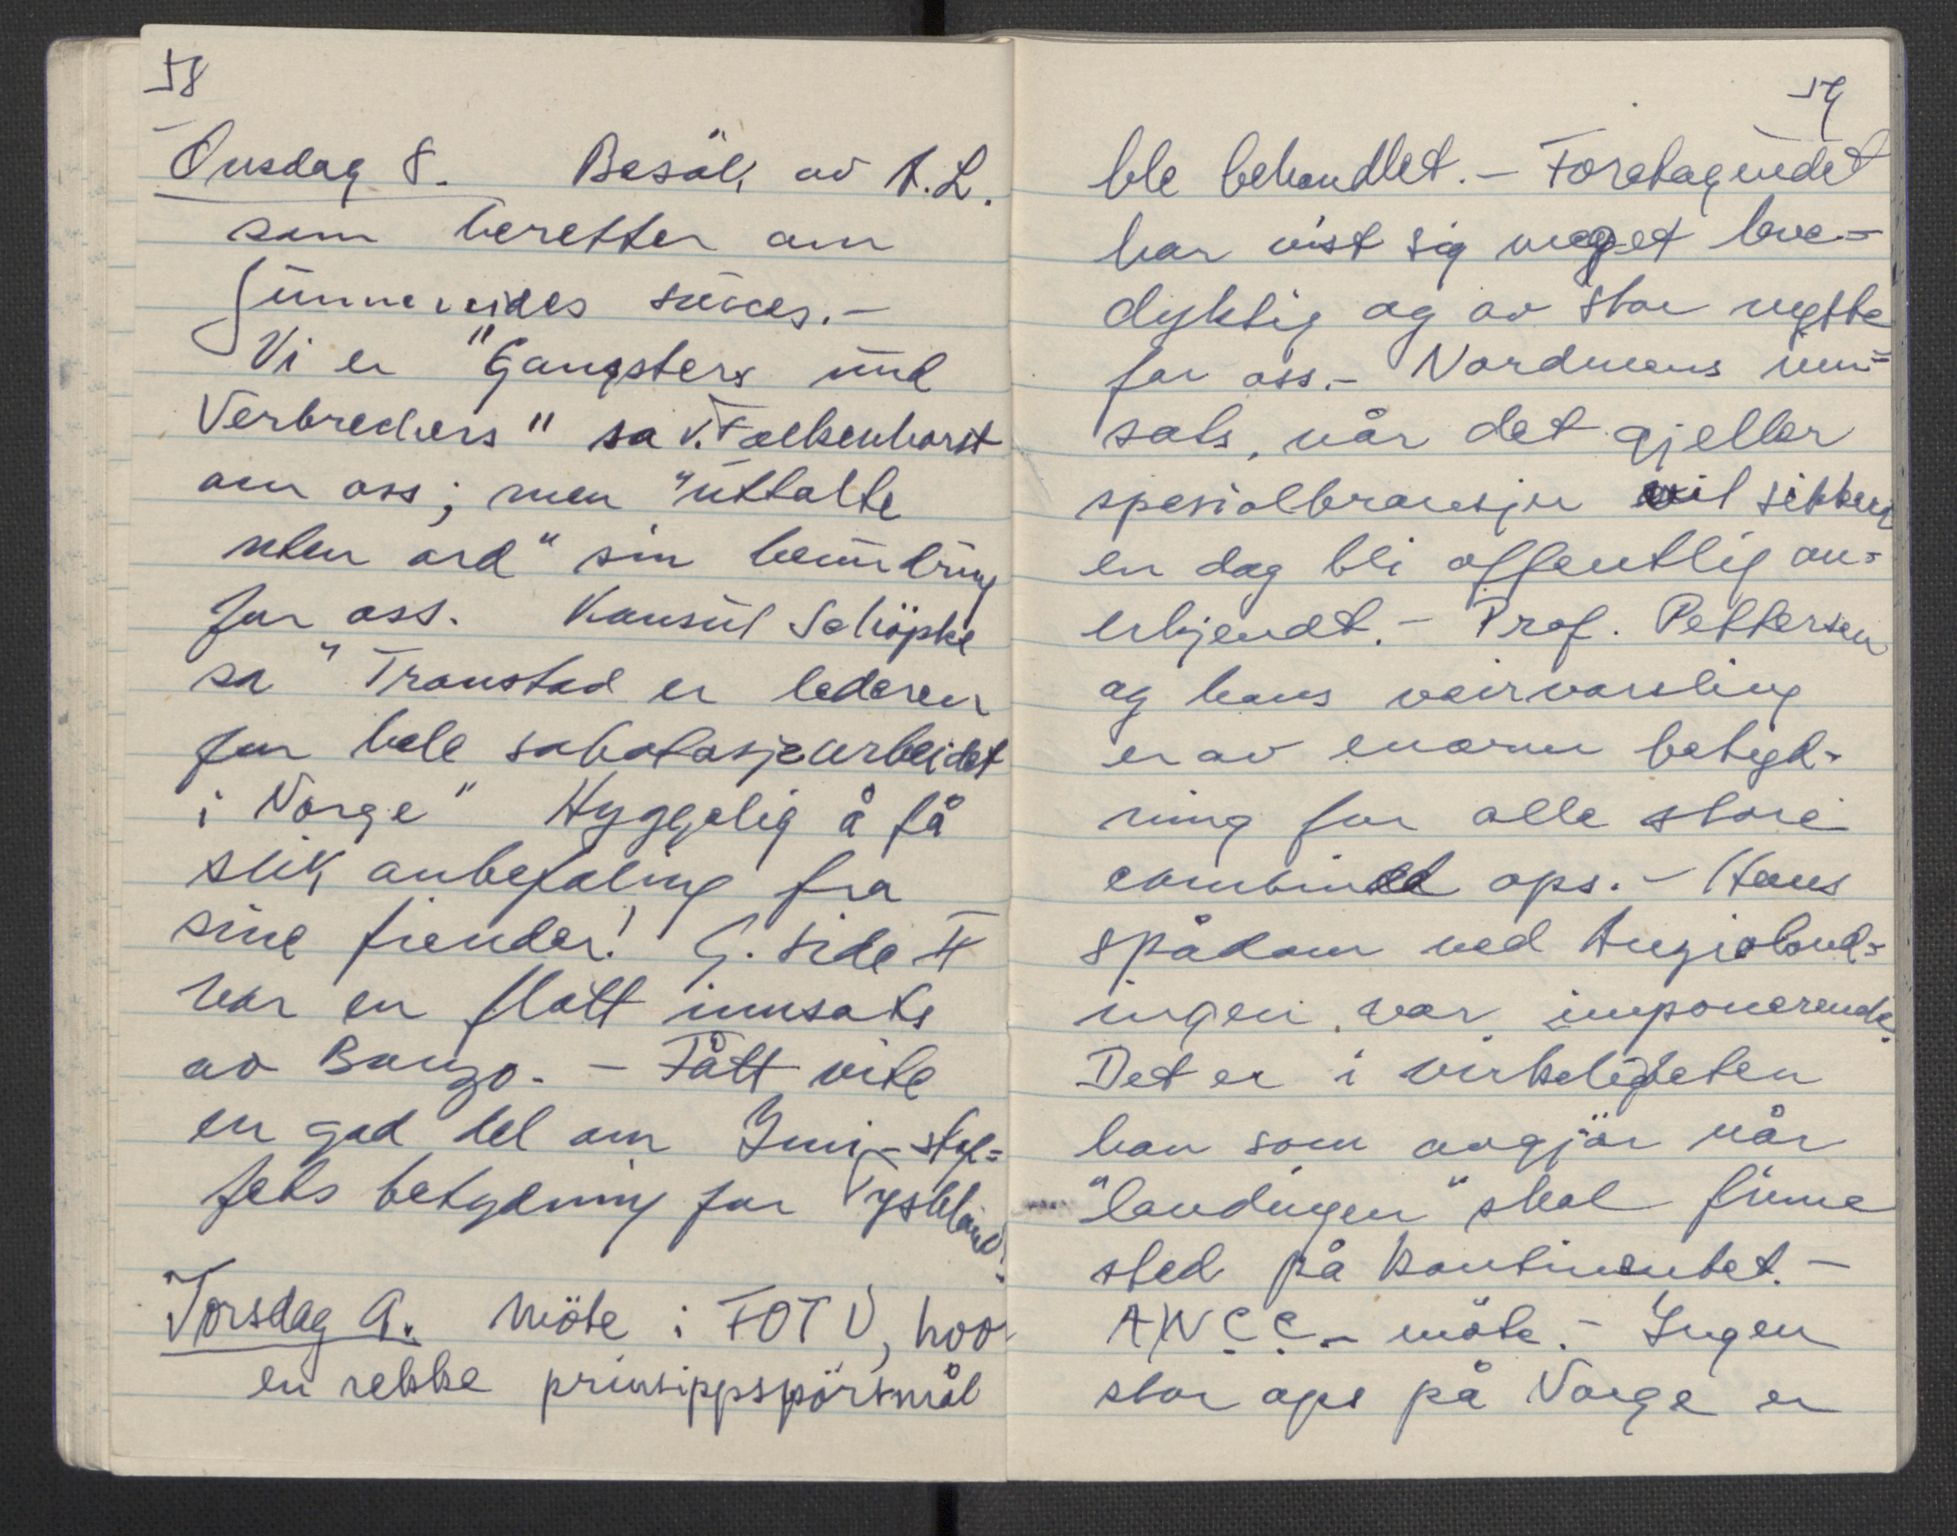 58
Onsdag 8. Besök av A.L.
som beretter om
Gunnersides succes.-
Vi er "Gangsters und
Verbrechers" sa v. Falkenhorst
om oss; men "uttalte
uten ord" sin beundring
for oss. Konsul Schöpke
sa "Tronstad er lederen
for hele sabotasjearbeidet
i Norge" Hyggelig å få
slik anbefaling fra
sine fiender! G. side II
var en flott innsats
av Bonzo. - Fått vite
en god del om Juni-stof=
fets betydning for Tyskland!
Torsdag 9. Möte i FOTU, hvor
en rekke prinsippspörsmål
59
ble behandlet. - Foretagendet
har vist sig meget leve=
dyktig og av stor nytte
for oss.- Nordmens inn=
sats, når det gjeller
spesialbransjer vil sikkert
en dag bli offentlig an=
erkjendt. - Prof. Pettersen
og hans veirvarsling
er av enorm betyd-
ning for alle store
combined ops. - Hans
spådom ved Anzioland=
ingen var imponerende.
Det er i virkeligheten
han som avgjör når
"landingen" skal finne
sted på kontinentet. -
ANCC - möte. - Ingen
stor ops på Norge er